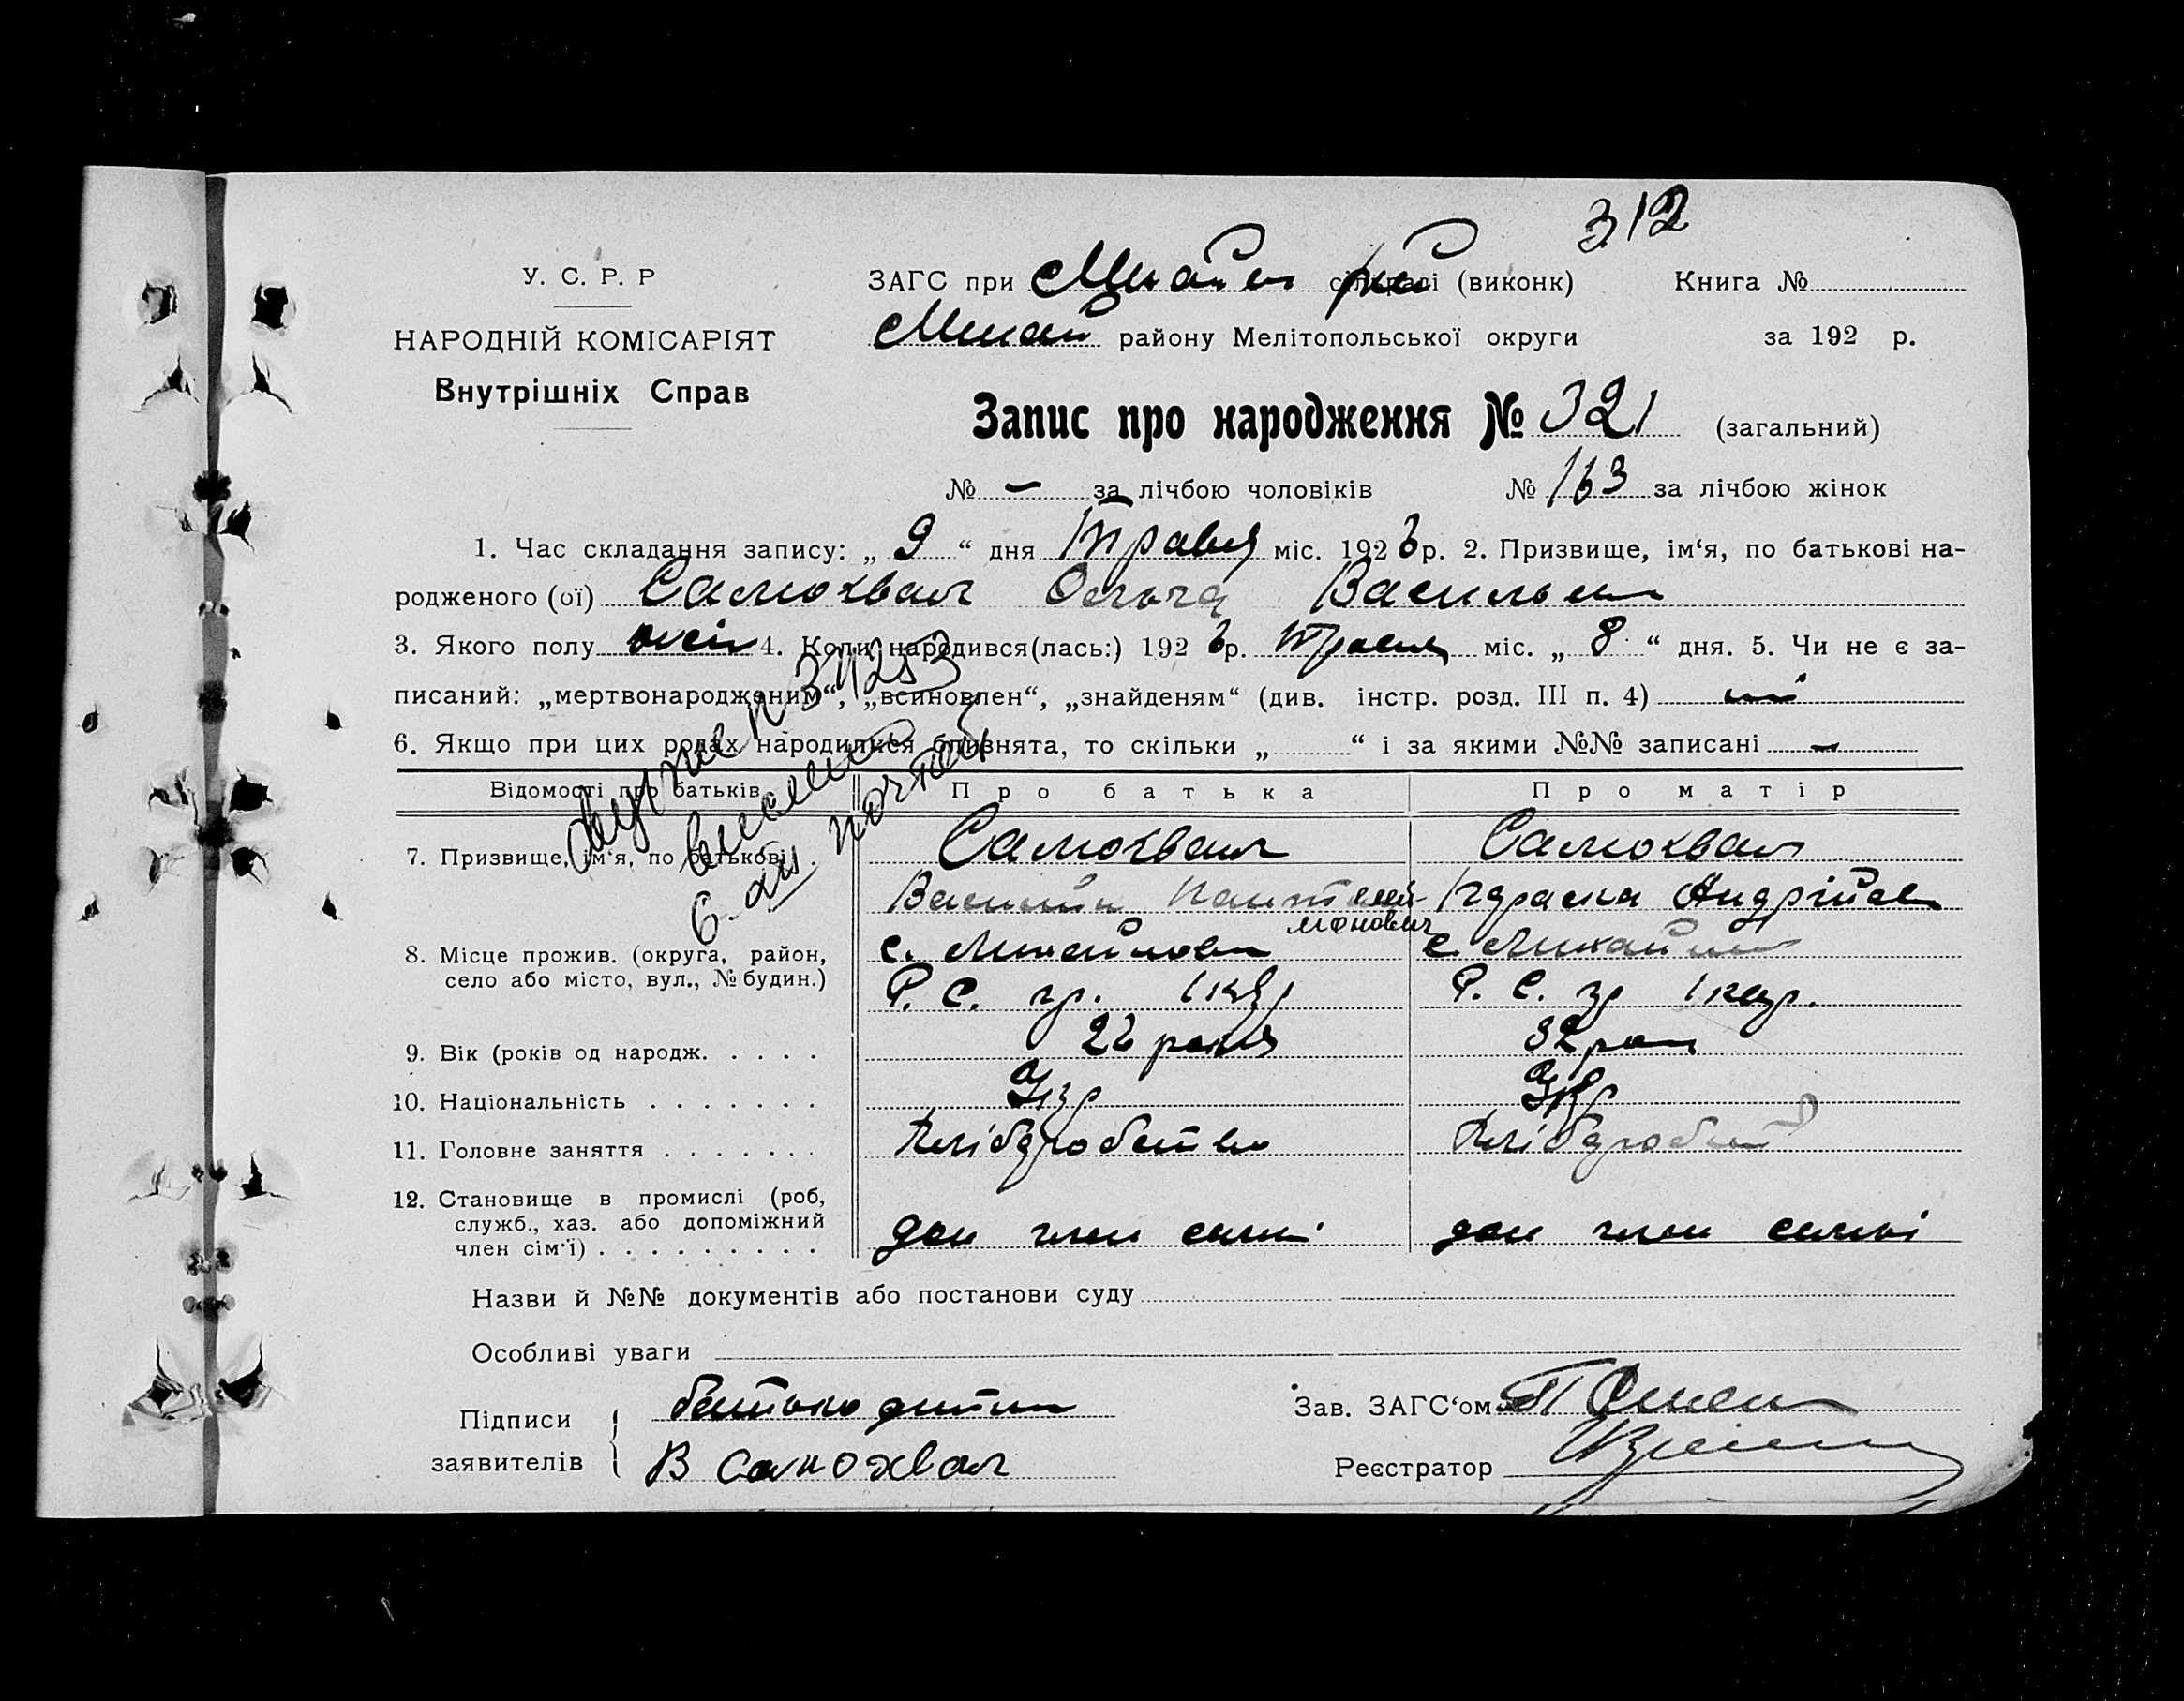 312
У. С. Р. Р
ЗАГС при сільраді (виконк) Книга №
НАРОДНІЙ КОМІСАРІЯТ
Внутрішніх Справ
району Мелітопольської округи за 192 р.
Запис про народження № 321 (загальний)
№ – за лічбою чоловіків № 163 за лічбою жінок
1. Час складання запису: „ 9 “ дня Травня міс. 1926 р. 2. Призвище, ім‘я, по батькові на-
родженого (ої) Самохвал Ольга Васильев
3. Якого полу жін 4. Коли народився(лась:) 1926 р. Травня міс. „ 8 “ дня. 5. Чи не є за-
писаний: „мертвонародженим“, „всиновлен“, „знайденям“ (див. інстр. розд. III п. 4) ні
6. Якщо при цих родах народилися близнята, то скільки „ “ і за якими №№ записані –
Відомості про батьків Про батька Про матір
7. Призвище, ім‘я, по батькові Самохвал Самохвал
Василь Пантелей- Андрійов
монович
8. Місце прожив. (округа, район,
село або місто, вул., № будин.)
с. Михайловка с. Михайловка
Р. С. гр. Р. С. гр
9. Вік (років од народж. 26 років 32 рок
10. Національність Укр Укр
11. Головне заняття Хліборобство Хліборобст
12. Становище в промислі (роб,
служб., хаз. або допоміжний
член сім‘ї) доп член симні доп член симні
Назви й №№ документів або постанови суду
Особливі уваги
Підписи батько дитини Зав. ЗАГС‘ом
заявителів В Самохвал Реєстратор